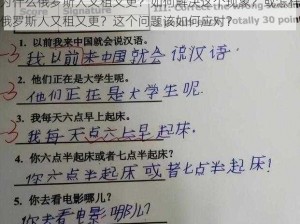 为什么俄罗斯人又粗又更？如何解决这个现象？或怎样
俄罗斯人又粗又更？这个问题该如何应对？
Totally 30 point
1. 以前我来中国就会说汉语。
我以前来中国就会说汉语
2. 他们正在是大学生呢。
他们正在是大学生呢.
3. 我每天六点早上起床。
我每天点六早上起床.
4. 你六点半起床或者七点半起床？
你六点半起床或者七点半起床!
5. 你去看电影哪儿？
你去看电影哪儿?